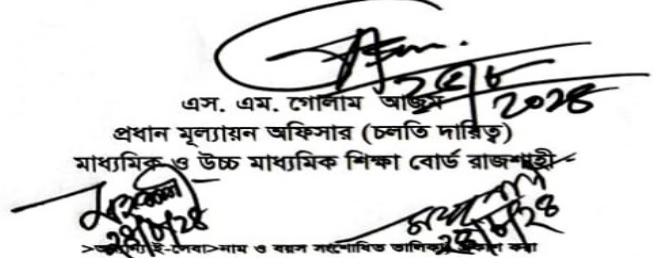 ২৫/৮
২০২৪
এস. এম. গোলাম আজম
প্রধান মূল্যায়ন অফিসার (চলতি দায়িত্ব)
মাধ্যমিক ও উচ্চ মাধ্যমিক শিক্ষা বোর্ড রাজশাহী
২৪
২৪
ই-সেবা>নাম ও বয়স সংশোধিত তালিকা প্রকাশ করা